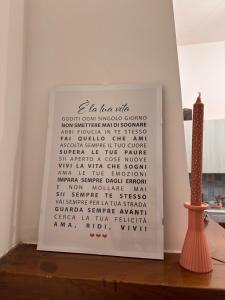 È la tua vita
GODITI OGNI SINGOLO GIORNO
NON SMETTERE MAI DI SOGNARE
ABBI FIDUCIA IN TE STESSO
FAI QUELLO CHE AMI
ASCOLTA SEMPRE IL TUO CUORE
SUPERA LE TUE PAURE
SII APERTO A COSE NUOVE
VIVI LA VITA CHE SOGNI
AMA LE TUE EMOZIONI
IMPARA SEMPRE DAGLI ERRORI
E NON MOLLARE MAI
SII SEMPRE TE STESSO
VAI SEMPRE PER LA TUA STRADA
GUARDA SEMPRE AVANTI
CERCA LA TUA FELICITÀ
AMA, RIDI, VIVI!